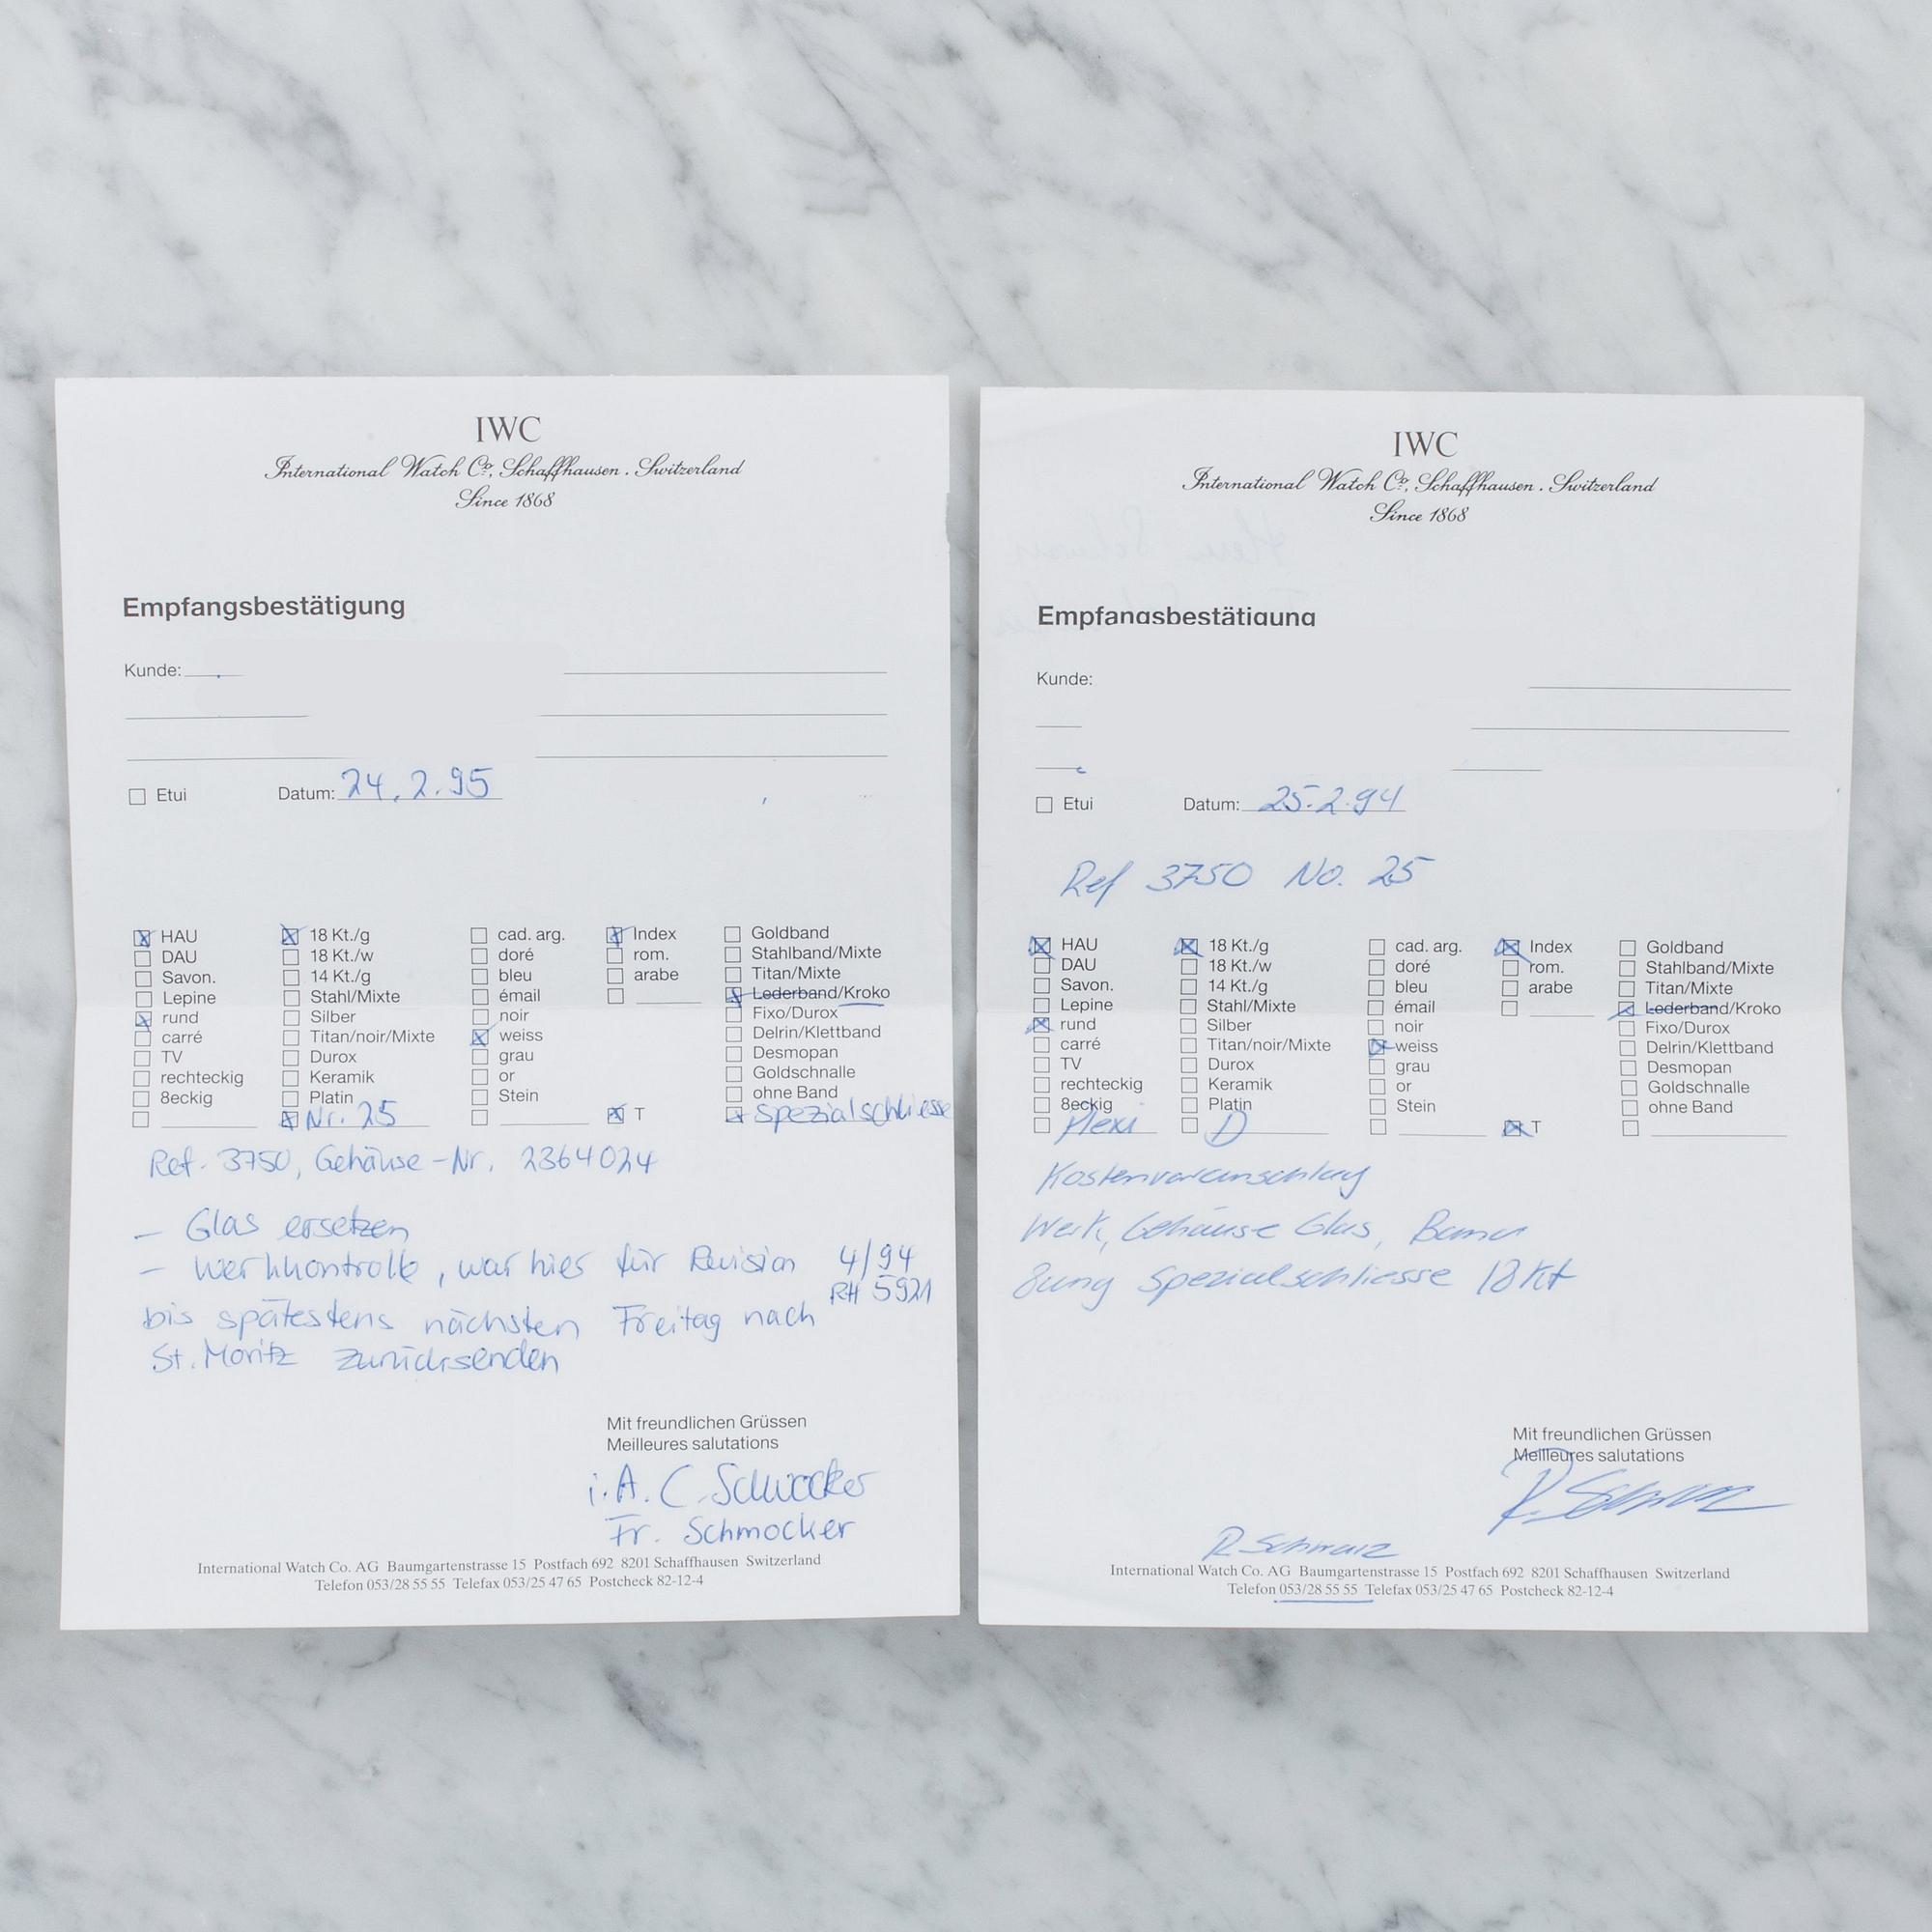 IWC
International Watch Co, Schaffhausen. Switzerland
Since 1868
Empfangsbestätigung
Kunde:
Etui Datum: 24.2.95
HAU 18 Kt./g cad. arg. Index Goldband
DAU 18 Kt./w doré rom. Stahlband/Mixte
Savon. 14 Kt./g bleu arabe Titan/Mixte
Lepine Stahl/Mixte émail Lederband/Kroko
rund Silber noir Fixo/Durox
carré Titan/noir/Mixte weiss Delrin/Klettband
TV Durox grau Desmopan
rechteckig Keramik or Goldschnalle
8eckig Platin Stein ohne Band
Nr. 25 T Spezialschliesse
Ref. 3750, Gehäuse-Nr. 2364024
- Glas ersetzen
- Werkkontrolle, war hier für Revision 4/94
RH 5921
bis spätestens nächsten Freitag nach
St. Moritz zurücksenden
Mit freundlichen Grüssen
Meilleures salutations
i.A. C. Schmocker
Fr. Schmocker
International Watch Co. AG Baumgartenstrasse 15 Postfach 692 8201 Schaffhausen Switzerland
Telefon 053/28 55 55 Telefax 053/25 47 65 Postcheck 82-12-4
IWC
International Watch Co, Schaffhausen. Switzerland
Since 1868
Empfangsbestätigung
Kunde:
Etui Datum: 25.2.94
Ref 3750 No. 25
HAU 18 Kt./g cad. arg. Index Goldband
DAU 18 Kt./w doré rom. Stahlband/Mixte
Savon. 14 Kt./g bleu arabe Titan/Mixte
Lepine Stahl/Mixte émail Lederband/Kroko
rund Silber noir Fixo/Durox
carré Titan/noir/Mixte weiss Delrin/Klettband
TV Durox grau Desmopan
rechteckig Keramik or Goldschnalle
8eckig Platin Stein ohne Band
Plexi D T
Kostenvoranschlag
Werk, Gehäuse Glas,
Spezialschliesse 18 Kt
Mit freundlichen Grüssen
Meilleures salutations
R. Schwarz
R. Schwarz
International Watch Co. AG Baumgartenstrasse 15 Postfach 692 8201 Schaffhausen Switzerland
Telefon 053/28 55 55 Telefax 053/25 47 65 Postcheck 82-12-4